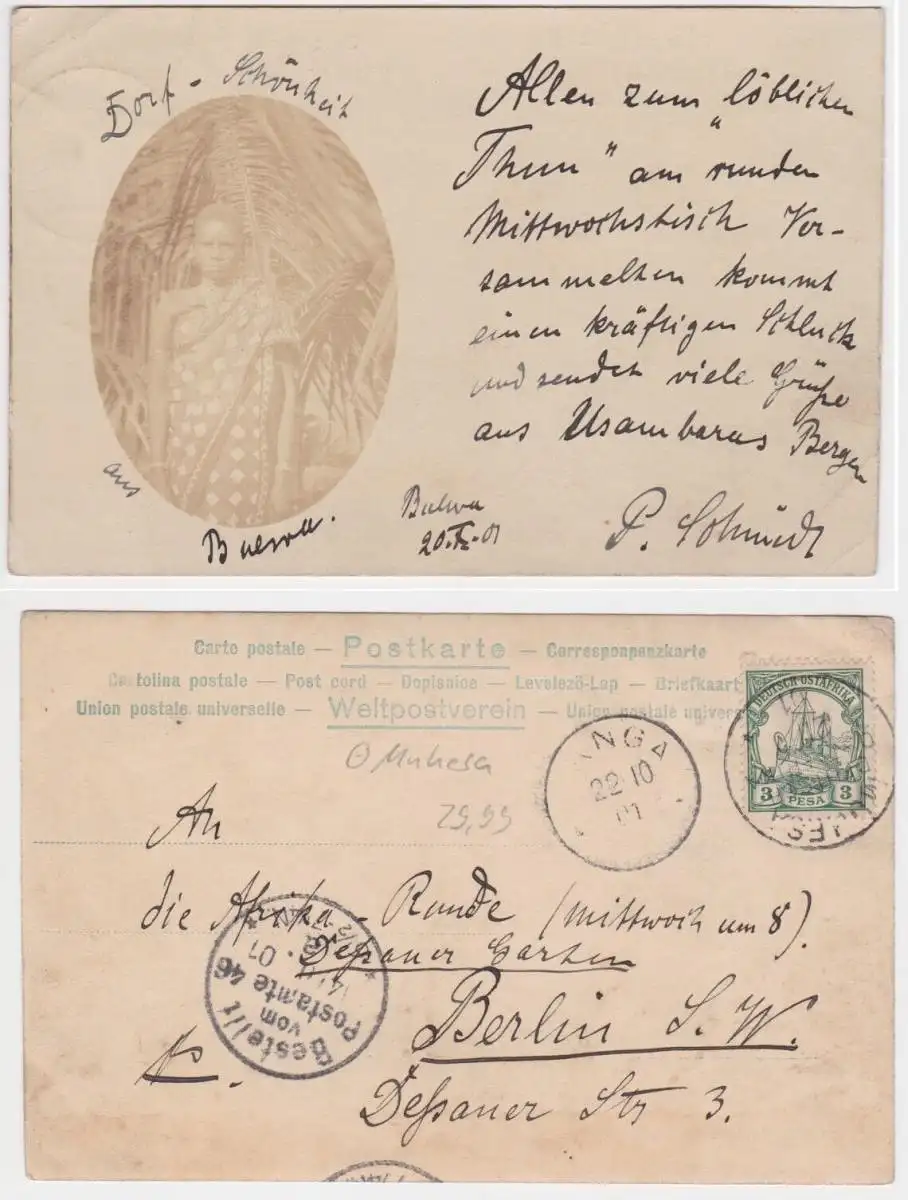 Dorf - Schönheit
aus
Bulwa.
Allen zum "löblichen
Thun" am runden
Mittwochstisch Ver-
sammelten kommt
einen kräftigen Schluck
und sendet viele Grüße
aus Usambaras Bergen
Bulwa
P. Schmidt
Carte postale — Postkarte — Corresponpenzkarte
Cartolina postale — Post cord — Dopisnice — Levelező-Lap — Briefkaart
Union postale universelle — Weltpostverein — Union postale univers
Muhesa
29,99
ANGA
22 10
01
DEUTSCH-OSTAFRIKA
3 PESA 3
An
die Afrika - Runde (Mittwoch um 8).
Deßauer Garten
Berlin S. W.
Deßauer Str 3.
Bestellt
vom
Postamte 46